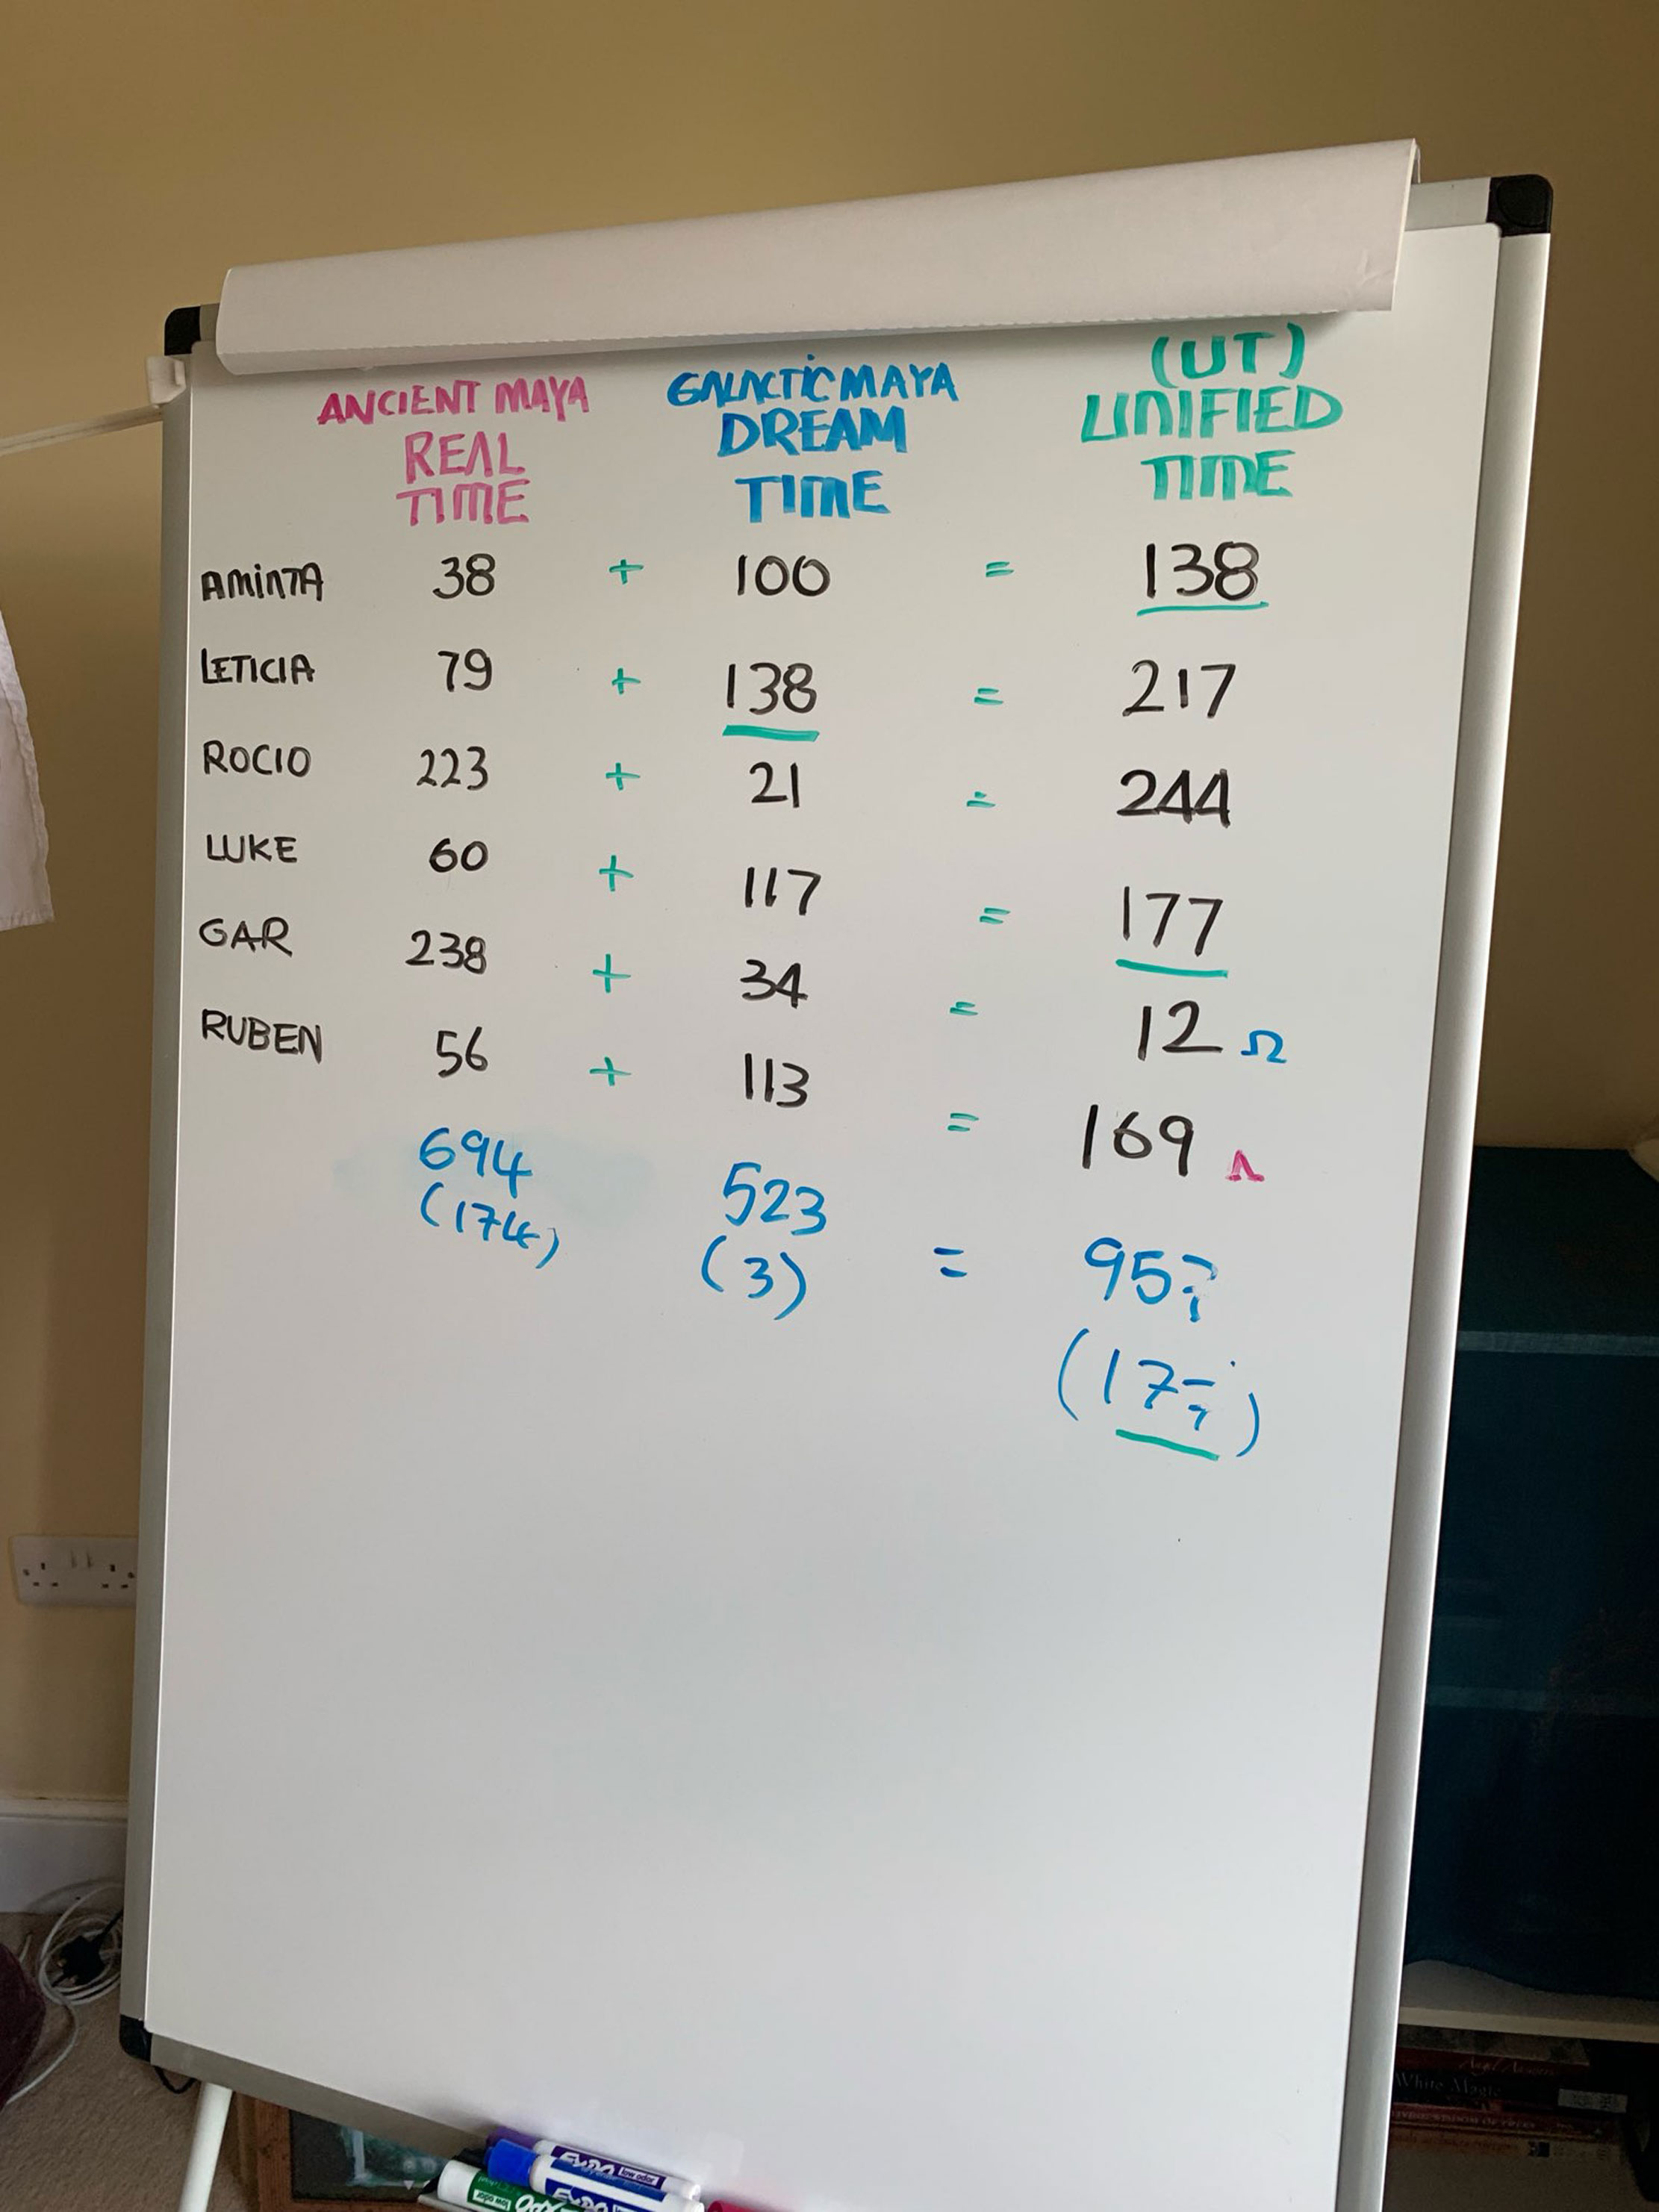 (UT)
ANCIENT MAYA GALACTIC MAYA UNIFIED
REAL DREAM TIME
TIME TIME
AMINTA 38 + 100 = 138
LETICIA 79 + 138 = 217
ROCIO 223 + 21 = 244
LUKE 60 + 117 = 177
GAR 238 + 34 = 12 Ω
RUBEN 56 + 113 = 169
694 523 = 957
(174) (3) (177)
White Magic
EXPO low odor
EXPO
low odor EXPO